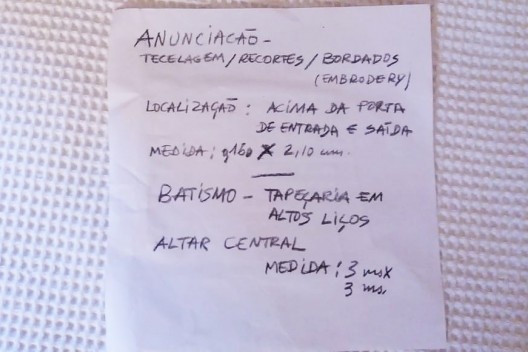 ANUNCIACÃO -
TECELAGEM / RECORTES / BORDADOS
(EMBRODERY)
LOCALIZAÇÃO : ACIMA DA PORTA
DE ENTRADA E SAÍDA
MEDIDA : X 2,10
BATISMO - TAPEÇARIA EM
ALTOS LIÇOS
ALTAR CENTRAL
MEDIDA : 3 ms X
3 ms.